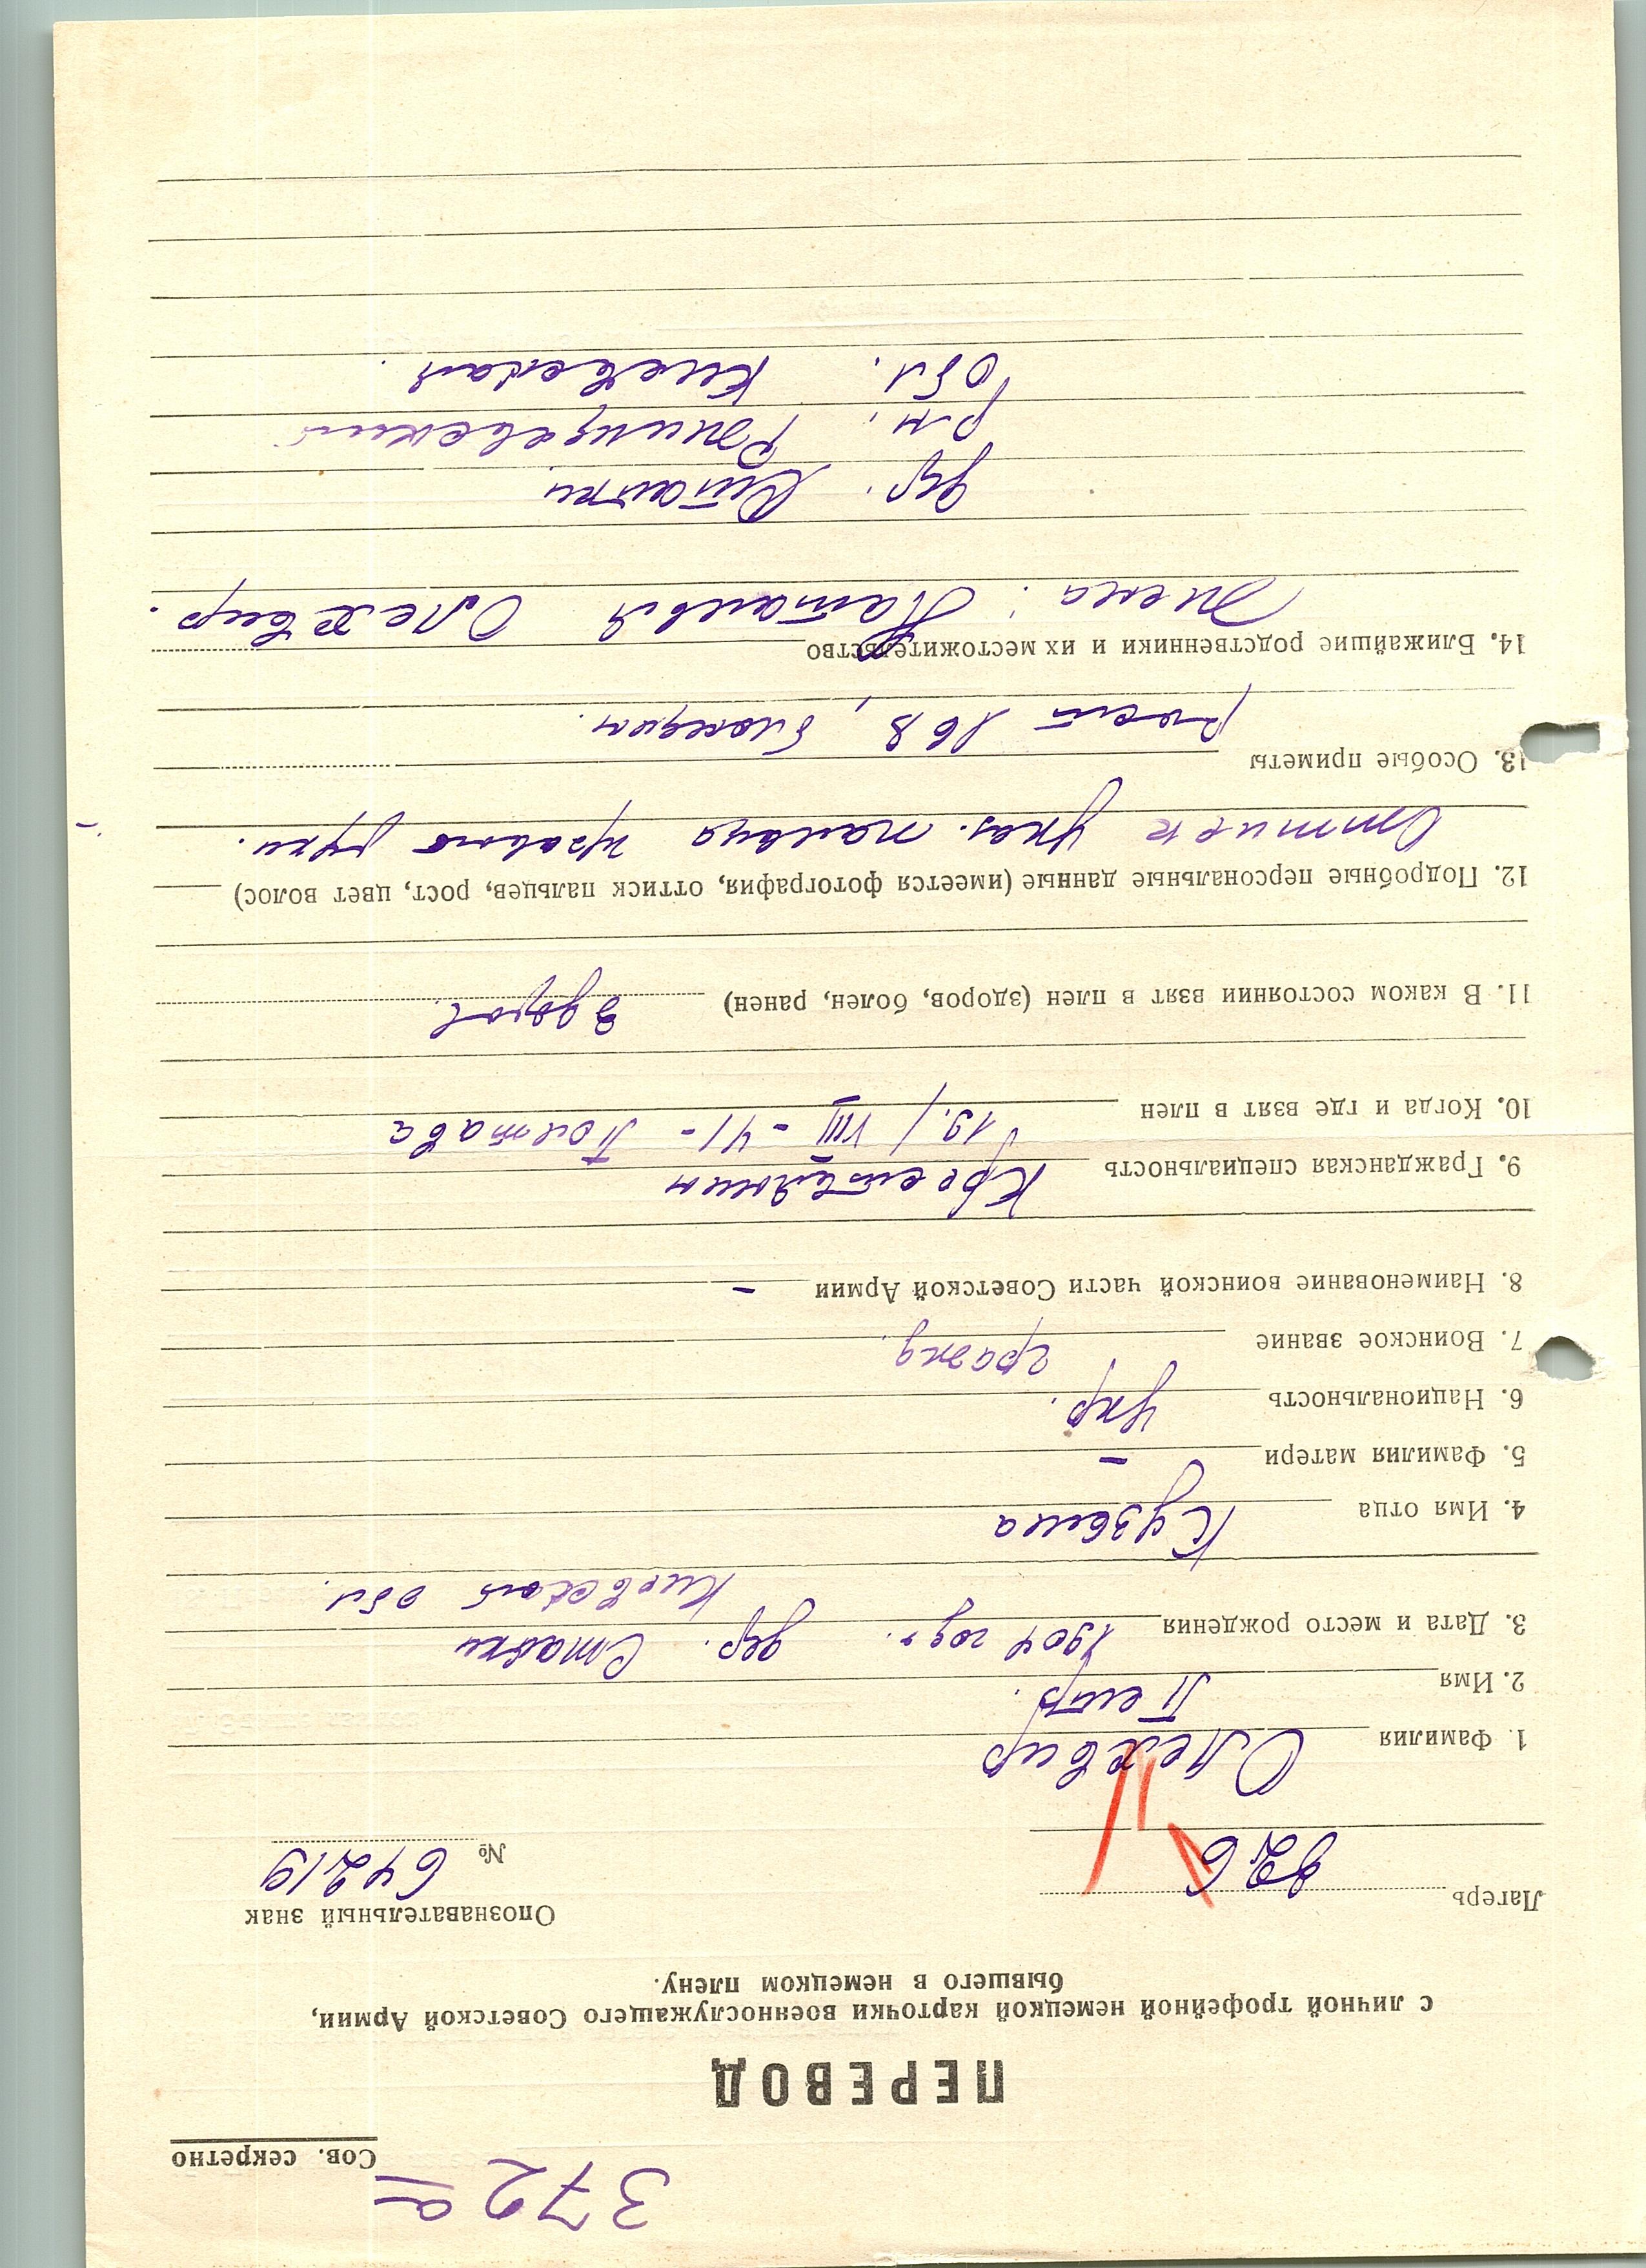 372 а
Сов. секретно
ПЕРЕВОД
с личной трофейной немецкой карточки военнослужащего Советской Армии,
бывшего в немецком плену.
Опознавательный знак
Лагерь 326 № 64219
1. Фамилия Олехвир
2. Имя Петр.
3. Дата и место рождения 1904 год. дер. Ставки
Киевской обл.
4. Имя отца Кузьма
5. Фамилия матери –
6. Национальность Укр.
7. Воинское звание гражд.
8. Наименование воинской части Советской Армии –
9. Гражданская специальность Крестьянин
10. Когда и где взят в плен 19/VIII – 41 – Полтава
11. В каком состоянии взят в плен (здоров, болен, ранен) Здоров.
12. Подробные персональные данные (имеется фотография, оттиск пальцев, рост, цвет волос)
Оттиск указ. пальца правой руки.
13. Особые приметы
рост 168, блондин.
14. Ближайшие родственники и их местожительство
Жена: Наталья Олехвир.
дер. Ставки
р-н.
Обл. Киевская.